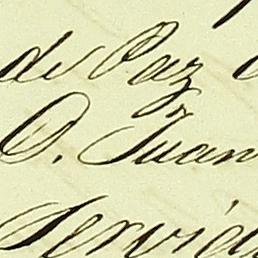 de Paz
D. Juan
Servid